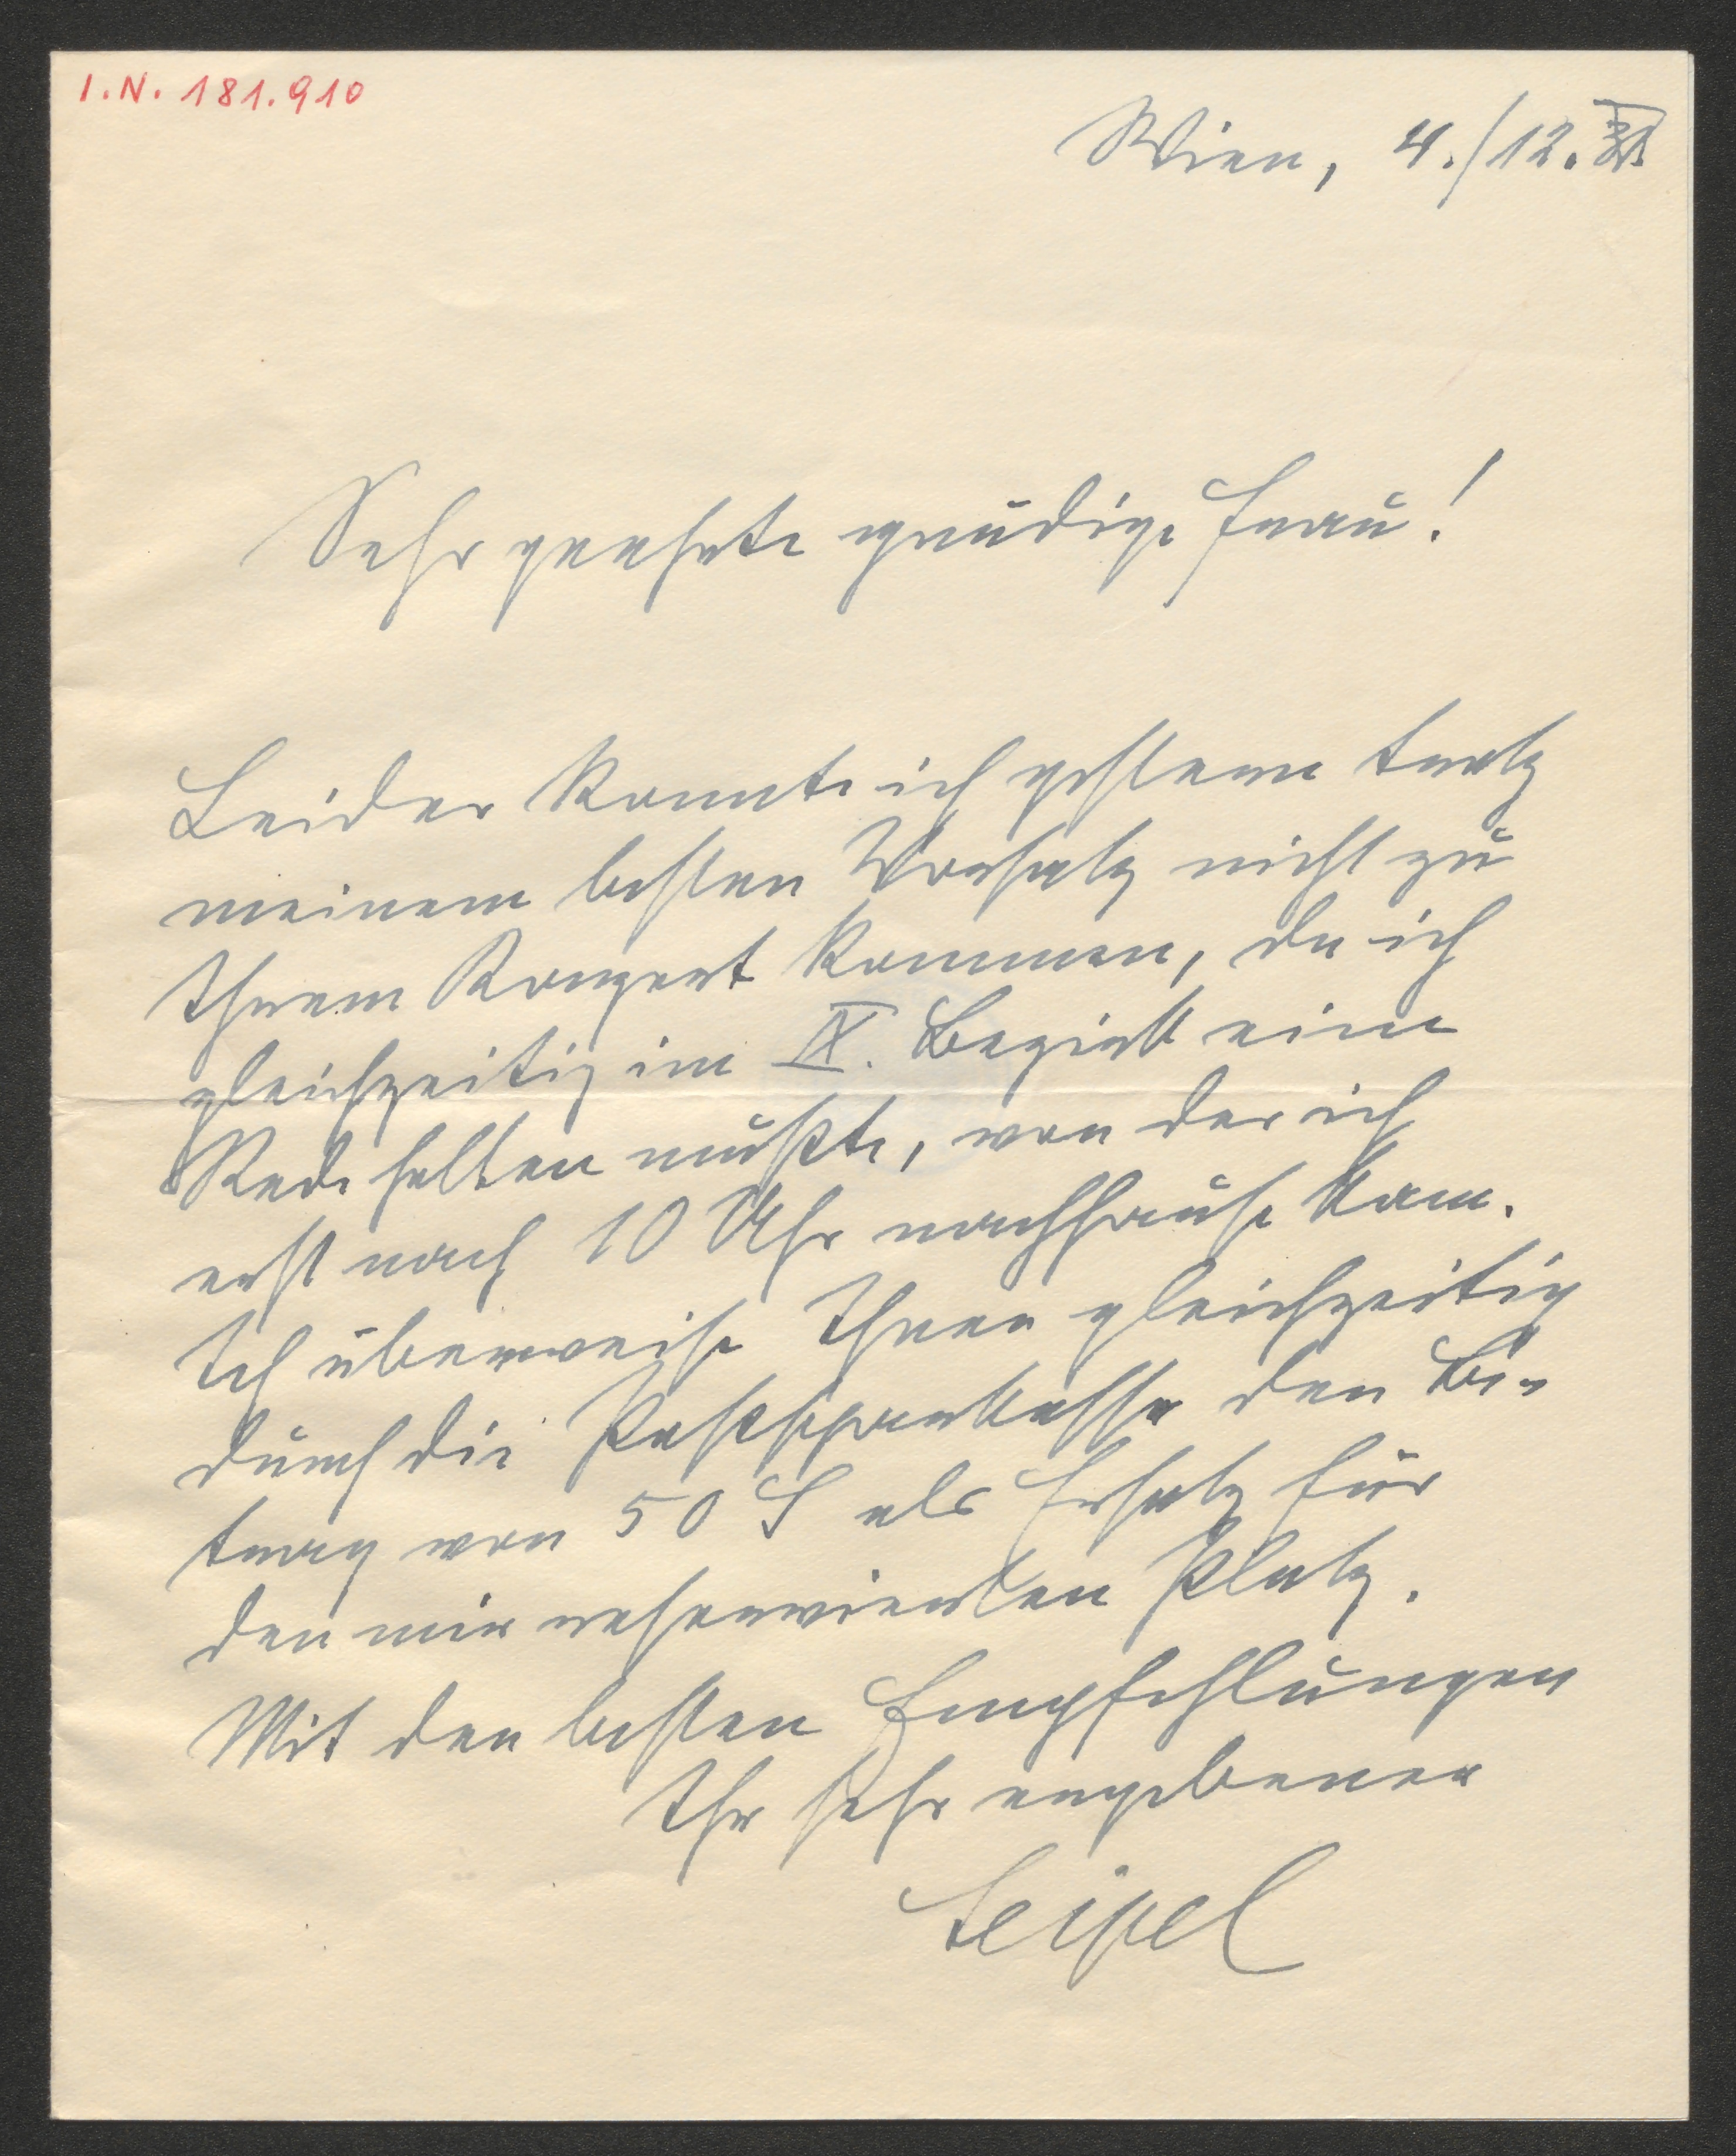 I.N. 181.910
Wien, 4./12.
Sehr geehrte gnädige Frau!
Leider konnte ich gestern trotz
meinem besten Vorsatz nicht zu
Ihrem Konzert kommen, da ich
gleichzeitig im IX. Bezirk eine
Rede halten mußte, von der ich
erst nach 10 Uhr nachhause kam.
Ich überweise Ihnen gleichzeitig
durch die Postsparkasse den Be-
trag von 50 S als Ersatz für
den mir reservierten Platz.
Mit den besten Empfehlungen
Ihr sehr ergebener
Seipel